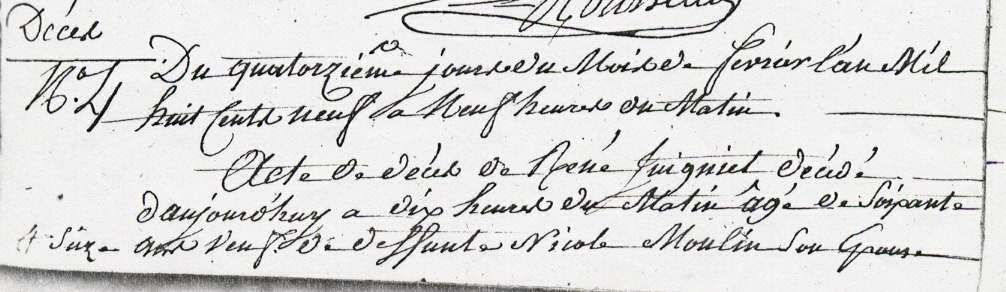 Décès
N.º 4 Du quatorzieme jours du Mois de fevrier l'an Mil
huit Cents neuf a Neuf heures du Matin.
Acte de décès de René Juigniet décédé
daujourdhuy a dix heures du Matin âgé de Soixante
et Sieze ans veuf de deffunte Nicole Moulin Son Epouse